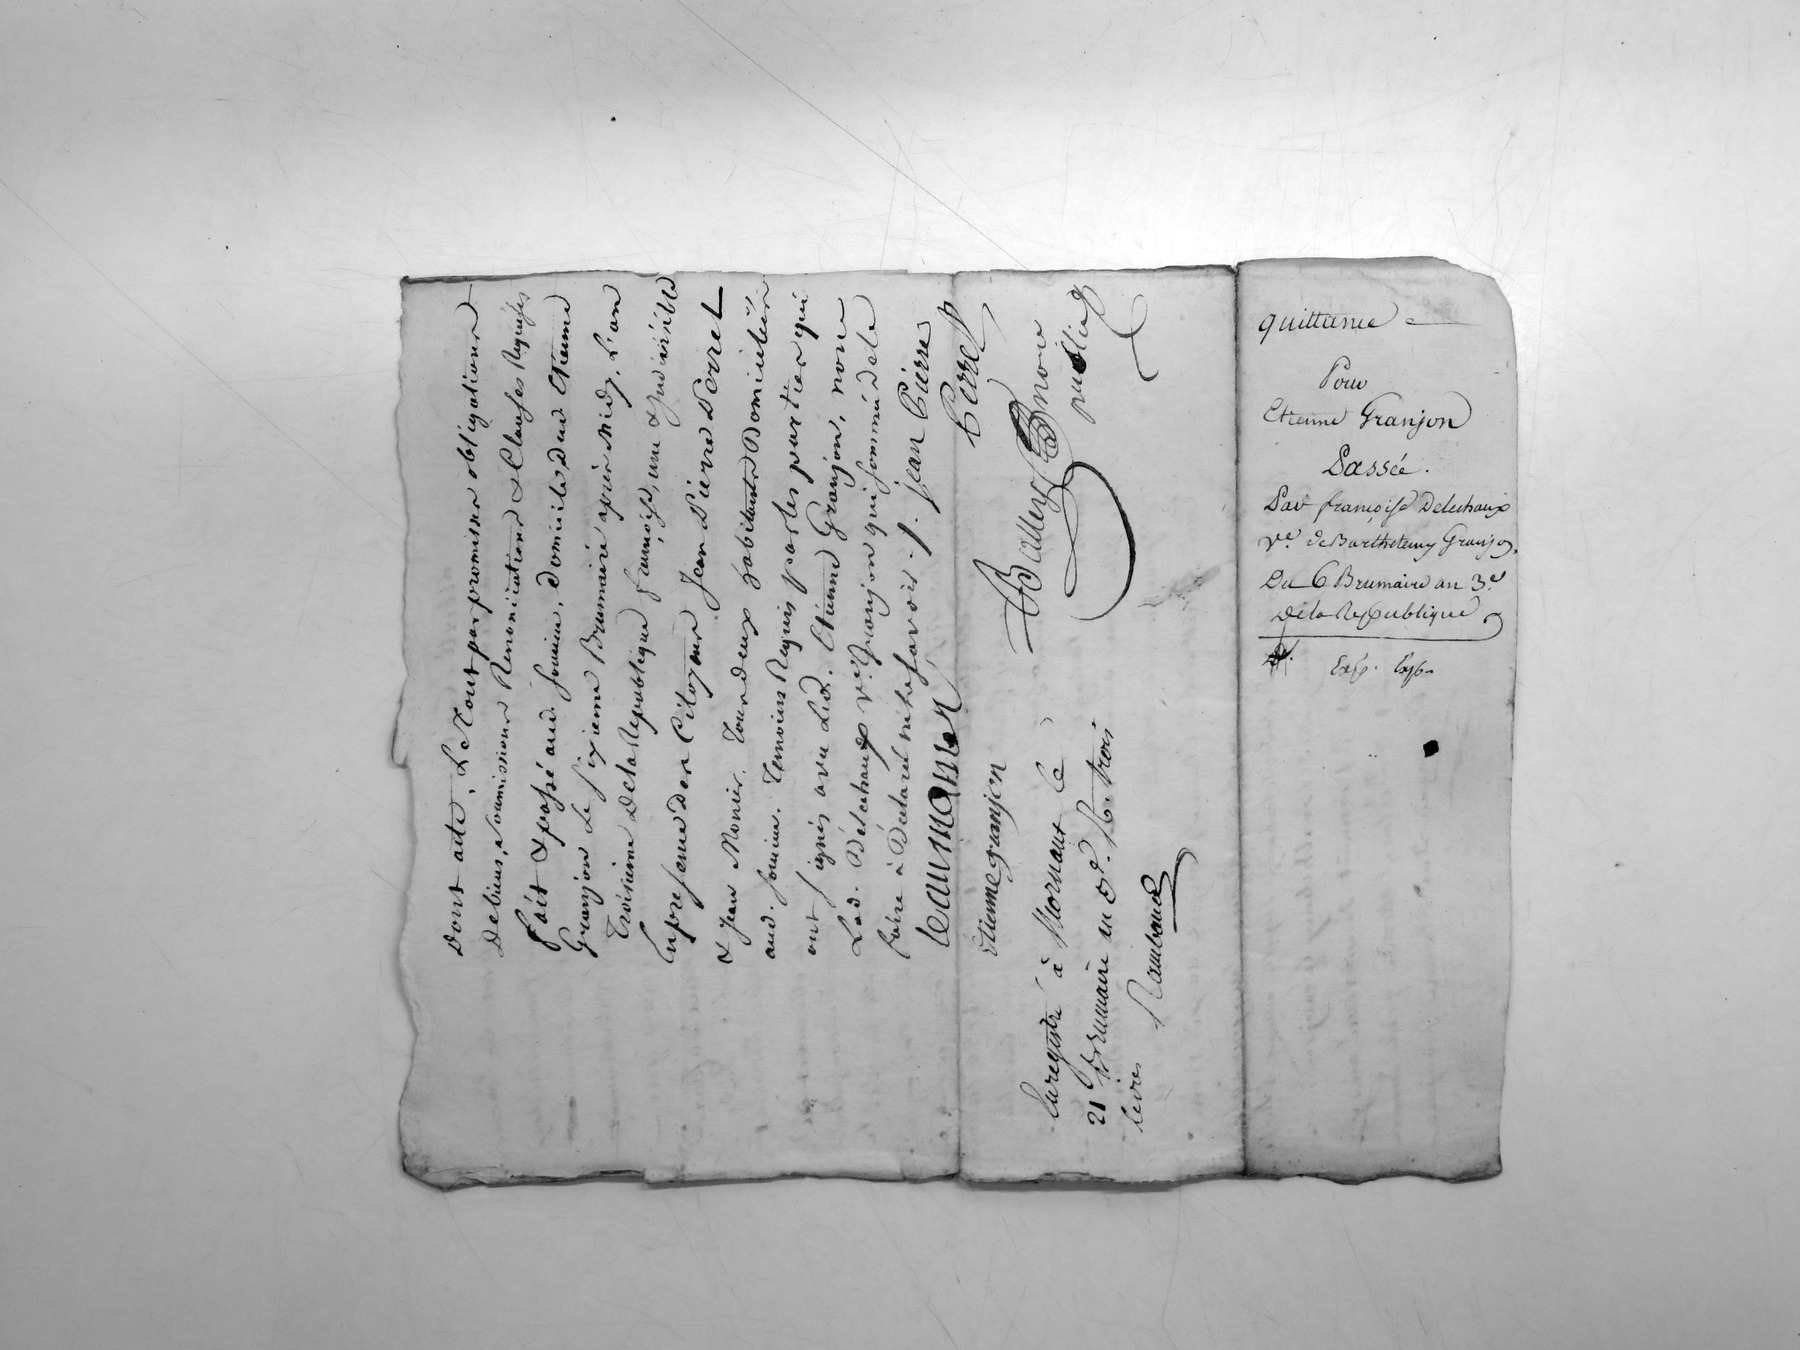 Dont acte, Le Tout par promisses obligations
De biens, soumissions Renonciations & Clauses Requises
fait & passé aud. domicile Dud Etienne
Granjon Le sixieme Brumaire après midy. L'an
Troisieme De la Republique francoise, une & indivisible
En presence Des Citoyens Jean Pierre Perret
& Jean Monier. Tous deux habitants Domiciliés
aud. Temoins Requis par les parties qui
ont signés avec Led. Etienne Granjon, non
Lad. Delechaux Ve. Granjon qui sommée de le
faire à Déclaré ne le savoir. /. jean Pierre
Perret
jean monier
Etienne granjon
Balley Noire
public
Enregistré à Mornant le
21 Brumaire an 3e. R. trois
livres
Raimbaud
quittance
Pour
Etienne Granjon
Passée.
Par françoise Delechaux
Ve. de Barthelemy Granjon.
Du 6 Brumaire an 3e
De la Republique
Exp.